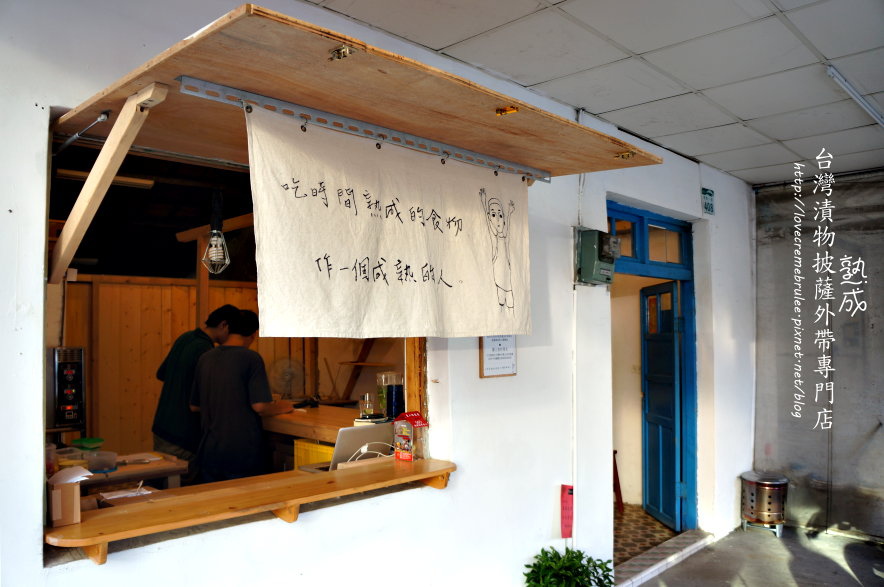 吃時間熟成的食物
作一個成熟的人
熟成
台灣漬物披薩外帶專門店
http://lovecremebrulee.pixnet.net/blog